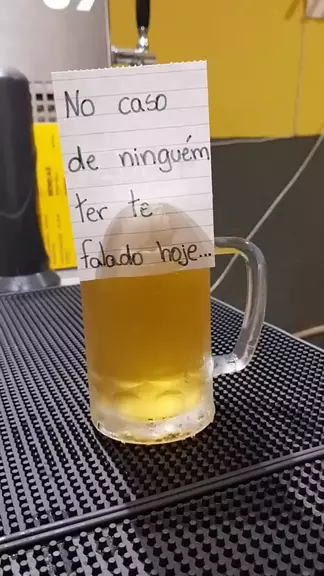 No caso
de ninguém
ter te
falado hoje...